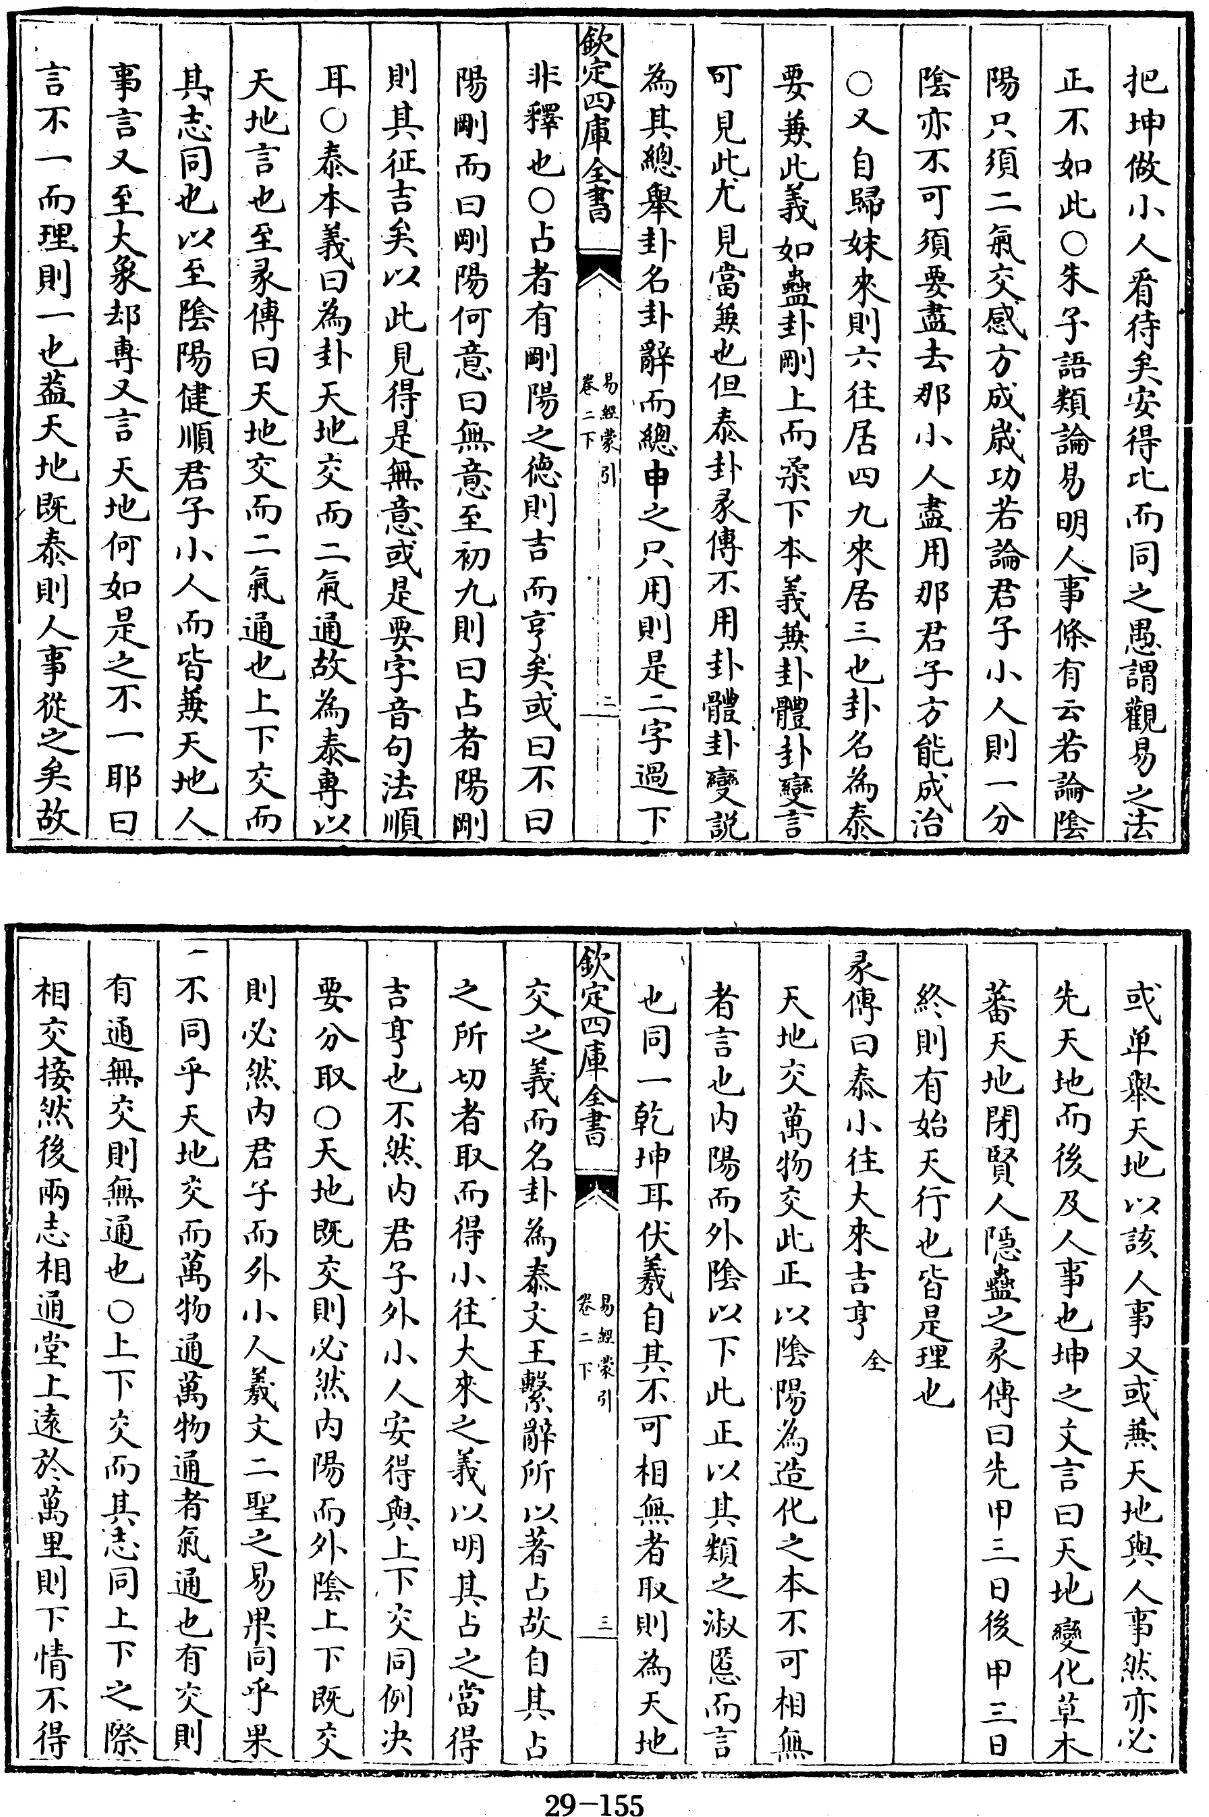 把坤做小人看待矣安得比而同之愚謂觀易之法
正不如此○朱子語類論易明人事條有云若論陰
陽只須二氣交感方成歲功若論君子小人則一分
陰亦不可須要盡去那小人盡用那君子方能成治
○又自歸妹來則六往居四九來居三也卦名為泰
要兼此義如蠱卦剛上而柔下本義兼卦體卦變言
可見此尤見當兼也但泰卦彖傳不用卦體卦變説
為其總舉卦名卦辭而總申之只用則是二字過下
欽定四庫全書
易經蒙引
卷二下
二
非釋也○占者有剛陽之德則吉而亨矣或曰不曰
陽剛而曰剛陽何意曰無意至初九則曰占者陽剛
則其征吉矣以此見得是無意或是要字音句法順
耳○泰本義曰為卦天地交而二氣通故為泰專以
天地言也至彖傳曰天地交而二氣通也上下交而
其志同也以至陰陽健順君子小人而皆兼天地人
事言又至大象却專又言天地何如是之不一耶曰
言不一而理則一也葢天地既泰則人事從之矣故
或单舉天地以該人事又或兼天地與人事然亦必
先天地而後及人事也坤之文言曰天地變化草木
蕃天地閉賢人隱蠱之彖傳曰先甲三日後甲三日
終則有始天行也皆是理也
彖傳曰泰小往大來吉亨 全
天地交萬物交此正以陰陽為造化之本不可相無
者言也内陽而外陰以下此正以其類之淑慝而言
也同一乾坤耳伏羲自其不可相無者取則為天地
欽定四庫全書
易經蒙引
卷二下
三
交之義而名卦為泰文王繫辭所以著占故自其占
之所切者取而得小往大來之義以明其占之當得
吉亨也不然内君子外小人安得與上下交同例決
要分取○天地既交則必然内陽而外陰上下既交
則必然内君子而外小人羲文二聖之易果同乎果
不同乎天地交而萬物通萬物通者氣通也有交則
有通無交則無通也○上下交而其志同上下之際
相交接然後兩志相通堂上遠於萬里則下情不得
29-155